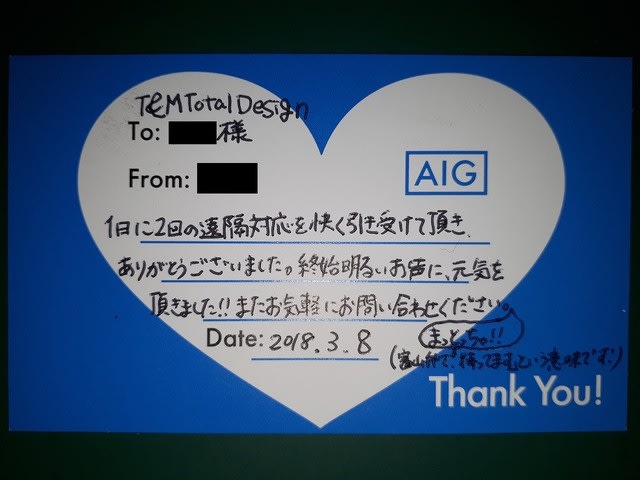 T&M Total Design
To: 様
From:
AIG
1日に2回の遠隔対応を快く引き受けて頂き、
ありがとうございました。終始明るいお声に、元気を
頂きました!!またお気軽にお問い合わせください。
Date: 2018.3.8
まっとっちゃ!!
(富山弁で、待ってますという意味です!)
Thank You!